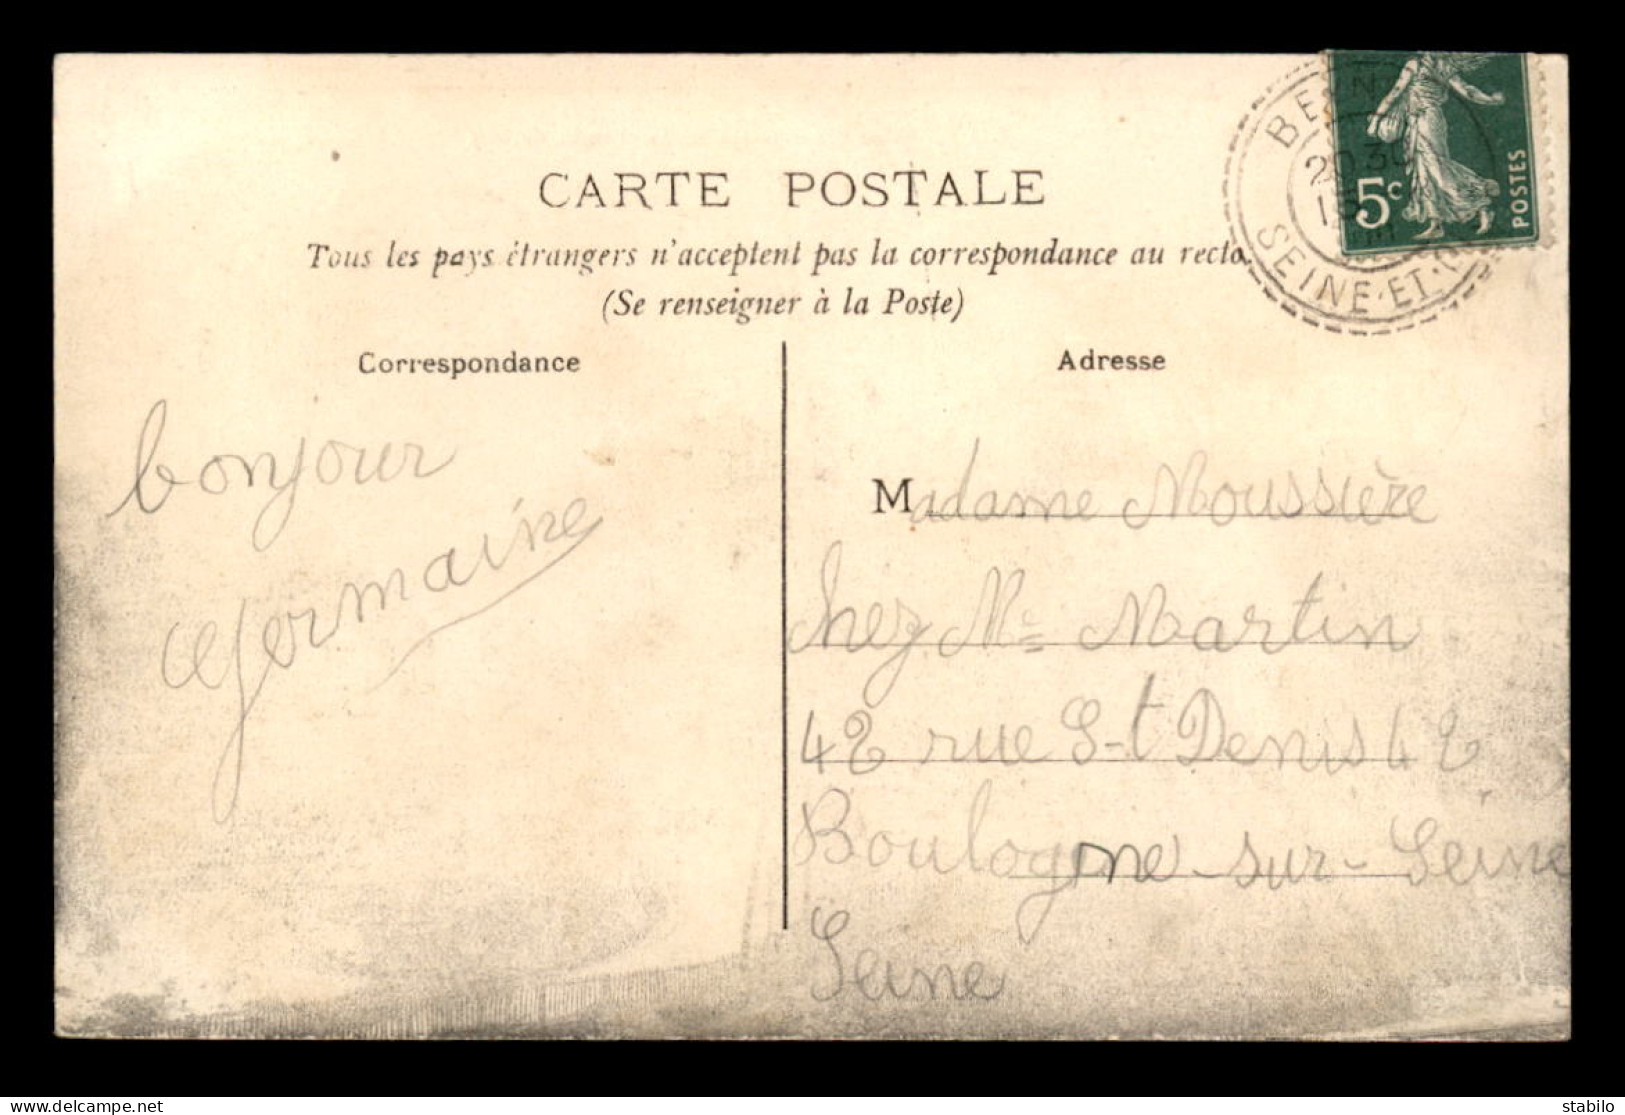 CARTE POSTALE
Tous les pays étrangers n'acceptent pas la correspondance au recto
(Se renseigner à la Poste)
SEINE-ET-
5c
POSTES
Correspondance
bonjour
Germaine
Adresse
Madame Moussière
chez Me Martin
42 rue S-t Denis 42
Boulogne-sur-Seine
Seine
delcampe.net
stabilo